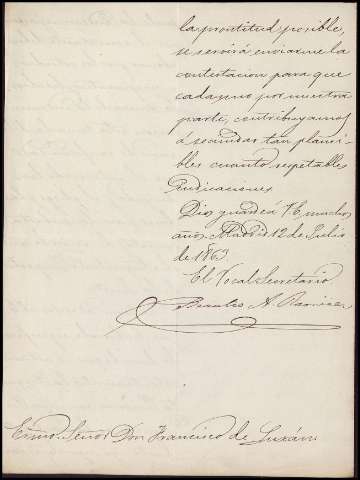 la prontitud posible,
se servirá enviarme la
contestacion para que
cada uno por nuestra
parte, contribuyamos
á secundar tan plausi-
bles cuanto respetables
indicaciones
Dios guarde á V.E. muchos
años. Madrid 12 de Julio
de 1863.
El Vocal Secretario
Braulio A. Ramirez
Exmo. Señor Don Francisco de Luxán.